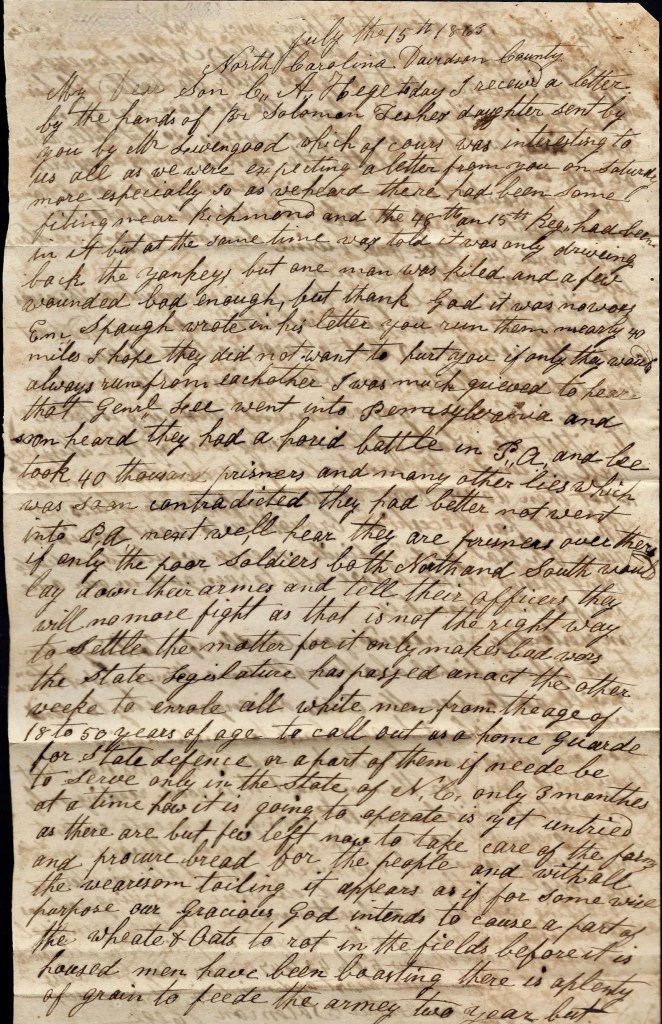 July the 15th 1863
North Carolina Davidson County
My Dear Son C, A, Hege today I received a letter
by the hands of Br Solomon daughter sent by
you by Mr Livengood which of cours was interesting to
us all as we were expecting a letter from you on Saturday
more especially so as we heard there had been some
fiting near Richmond and the 48th an 15th Reg, had been
in it but at the same time was told it was only driveing
back the yankeys but one man was kiled and a few
wounded bad enough, but thank God it was no wors
Em, Spaugh wrote in his letter you run them nearly 40
miles I hope they did not want to hurt you if only they would
always run from eachother I was much grieved to hear
that Genrl Lee went into Pennsylvania and
soon heard they had a horid battle in P,, A,, and Lee
took 40 thousand prisners and many other lies which
was soon contradicted they had better not went
into P,A next we,ll hear they are prisners over there
if only the poor Soldiers both North and South would
lay down their armes and tell their officers they
will no more fight as that is not the right way
to settle the matter for it only makes bad wors
the State Legislature has passed an act the other
weeke to enrole all white men from the age of
18 to 50 years of age to call out as a home Guarde
for State defence or a part of them if neede be
to serve only in the State of N,, C,, only 3 monthes
at a time how it is going to operate is yet untried
as there are but few left now to take care of the farm
and procure bread for the people and with all
the wearisom toiling it appears as if for some wise
purpose our Gracious God intends to cause a part of
the Wheate & Oats to rot in the fields before it is
housed men have been boasting there is aplenty
of grain to feede the armey two year but